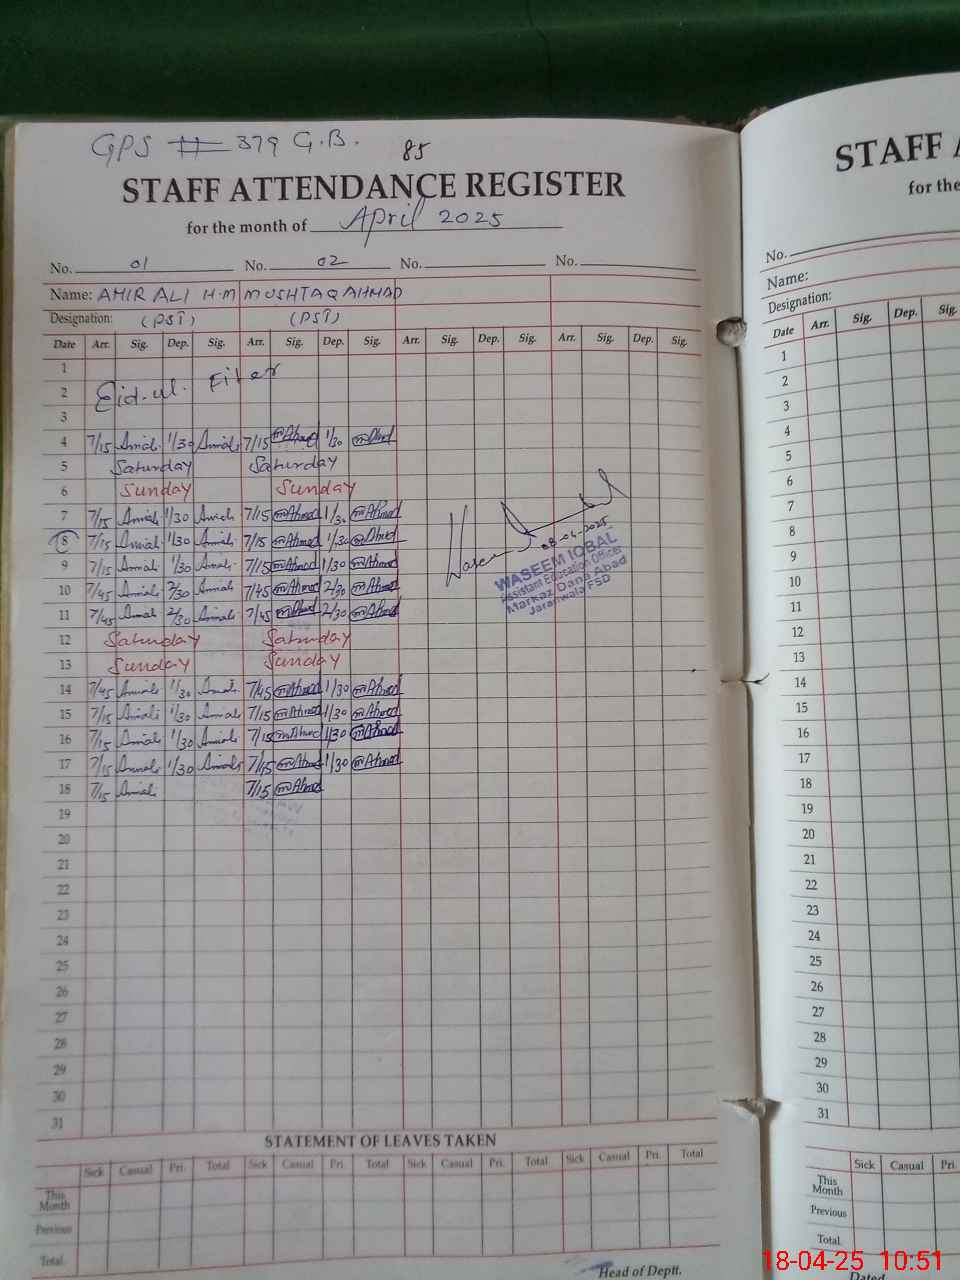 GPS # 379 G.B. 85
STAFF ATTENDANCE REGISTER
for the month of April 2025
No. 01 No. 02 No. No.
Name: AMIR ALI H.M MUSHTAQ AHMAD
Designation: (PST) (PST)
Date Arr. Sig. Dep. Sig. Arr. Sig. Dep. Sig. Arr. Sig. Dep. Sig. Arr. Sig. Dep. Sig.
1
2 Eid-ul-Fiter
3
4 7/15 Amirali 1/30 Amirali 7/15 mAhmad 1/30 mAhmad
5 Saturday Saturday
6 Sunday Sunday
7 7/15 Amirali 1/30 Amirali 7/15 mAhmad 1/30 mAhmad
8 7/15 Amirali 1/30 Amirali 7/15 mAhmad 1/30 mAhmad
9 7/15 Amirali 1/30 Amirali 7/15 mAhmad 1/30 mAhmad
10 7/45 Amirali 2/30 Amirali 7/45 mAhmad 2/30 mAhmad
11 7/45 Amirali 2/30 Amirali 7/45 mAhmad 2/30 mAhmad
12 Saturday Saturday
13 Sunday Sunday
14 7/45 Amirali 1/30 Amirali 7/45 mAhmad 1/30 mAhmad
15 7/15 Amirali 1/30 Amirali 7/15 mAhmad 1/30 mAhmad
16 7/15 Amirali 1/30 Amirali 7/15 mAhmad 1/30 mAhmad
17 7/15 Amirali 1/30 Amirali 7/15 mAhmad 1/30 mAhmad
18 7/15 Amirali 7/15 mAhmad
19
20
21
22
23
24
25
26
27
28
29
30
31
08-04-2025
WASEEM IQBAL
Assistant Education Officer
Markaz Dana Abad
Jaranwala FSD
STATEMENT OF LEAVES TAKEN
Sick Casual Pri. Total Sick Casual Pri. Total Sick Casual Pri. Total Sick Casual Pri. Total
This Month
Previous
Total
Head of Deptt.
STAFF A
for the
No.
Name:
Designation:
Date Arr. Sig. Dep. Sig.
1
2
3
4
5
6
7
8
9
10
11
12
13
14
15
16
17
18
19
20
21
22
23
24
25
26
27
28
29
30
31
Sick Casual Pri.
This Month
Previous
Total
Dated
18-04-25 10:51